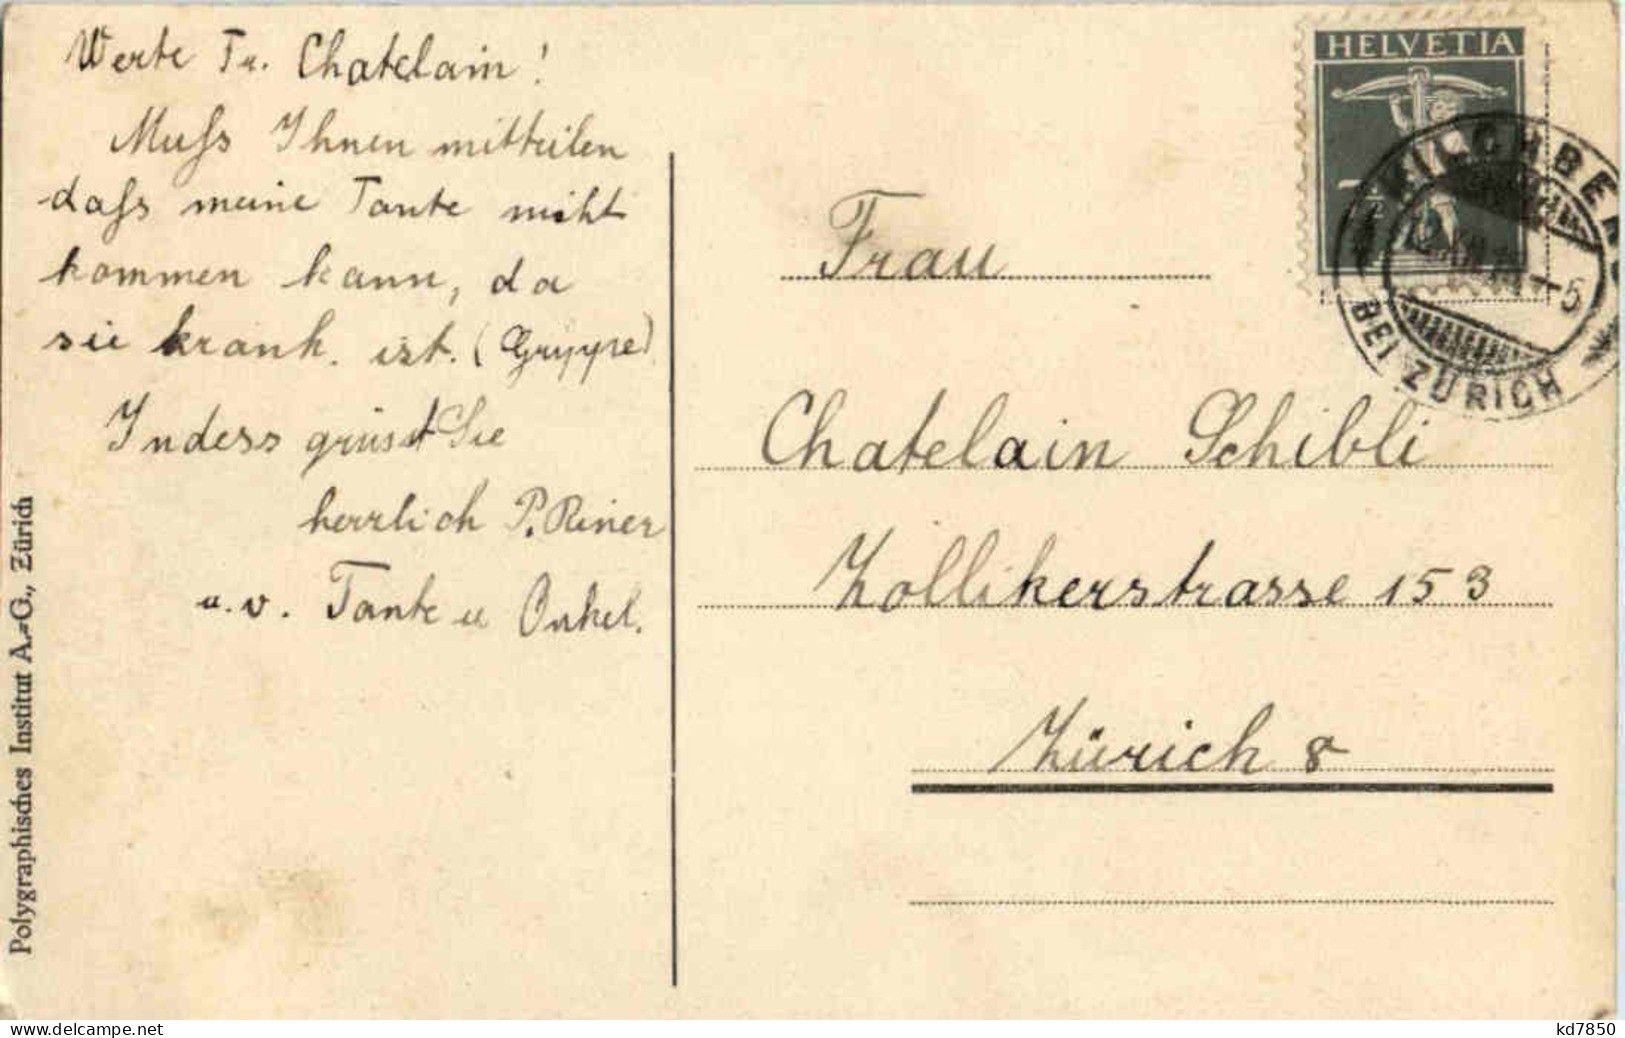 Werte Fr. Chatelain!
Muss Ihnen mitteilen
dass meine Tante nicht
kommen kann, da
sie krank. ist. (Gryppe)
Indess grüsst Sie
herzlich P. Riner
u. v. Tante u Onkel.
Polygraphisches Institut A.-G., Zürich
HELVETIA
7½
KILCHBERG
XII.
-5
BEI ZÜRICH
Frau
Chatelain Schibli
Zollikerstrasse 153
Zürich 8
delcampe.net
kd7850